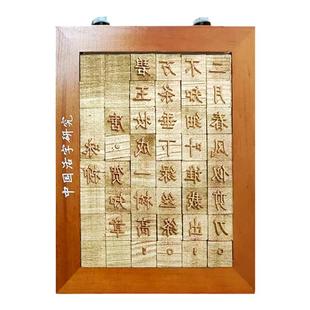 中国活字研究
咏柳
唐 贺知章
碧玉妆成一树高，
万条垂下绿丝绦。
不知细叶谁裁出，
二月春风似剪刀。